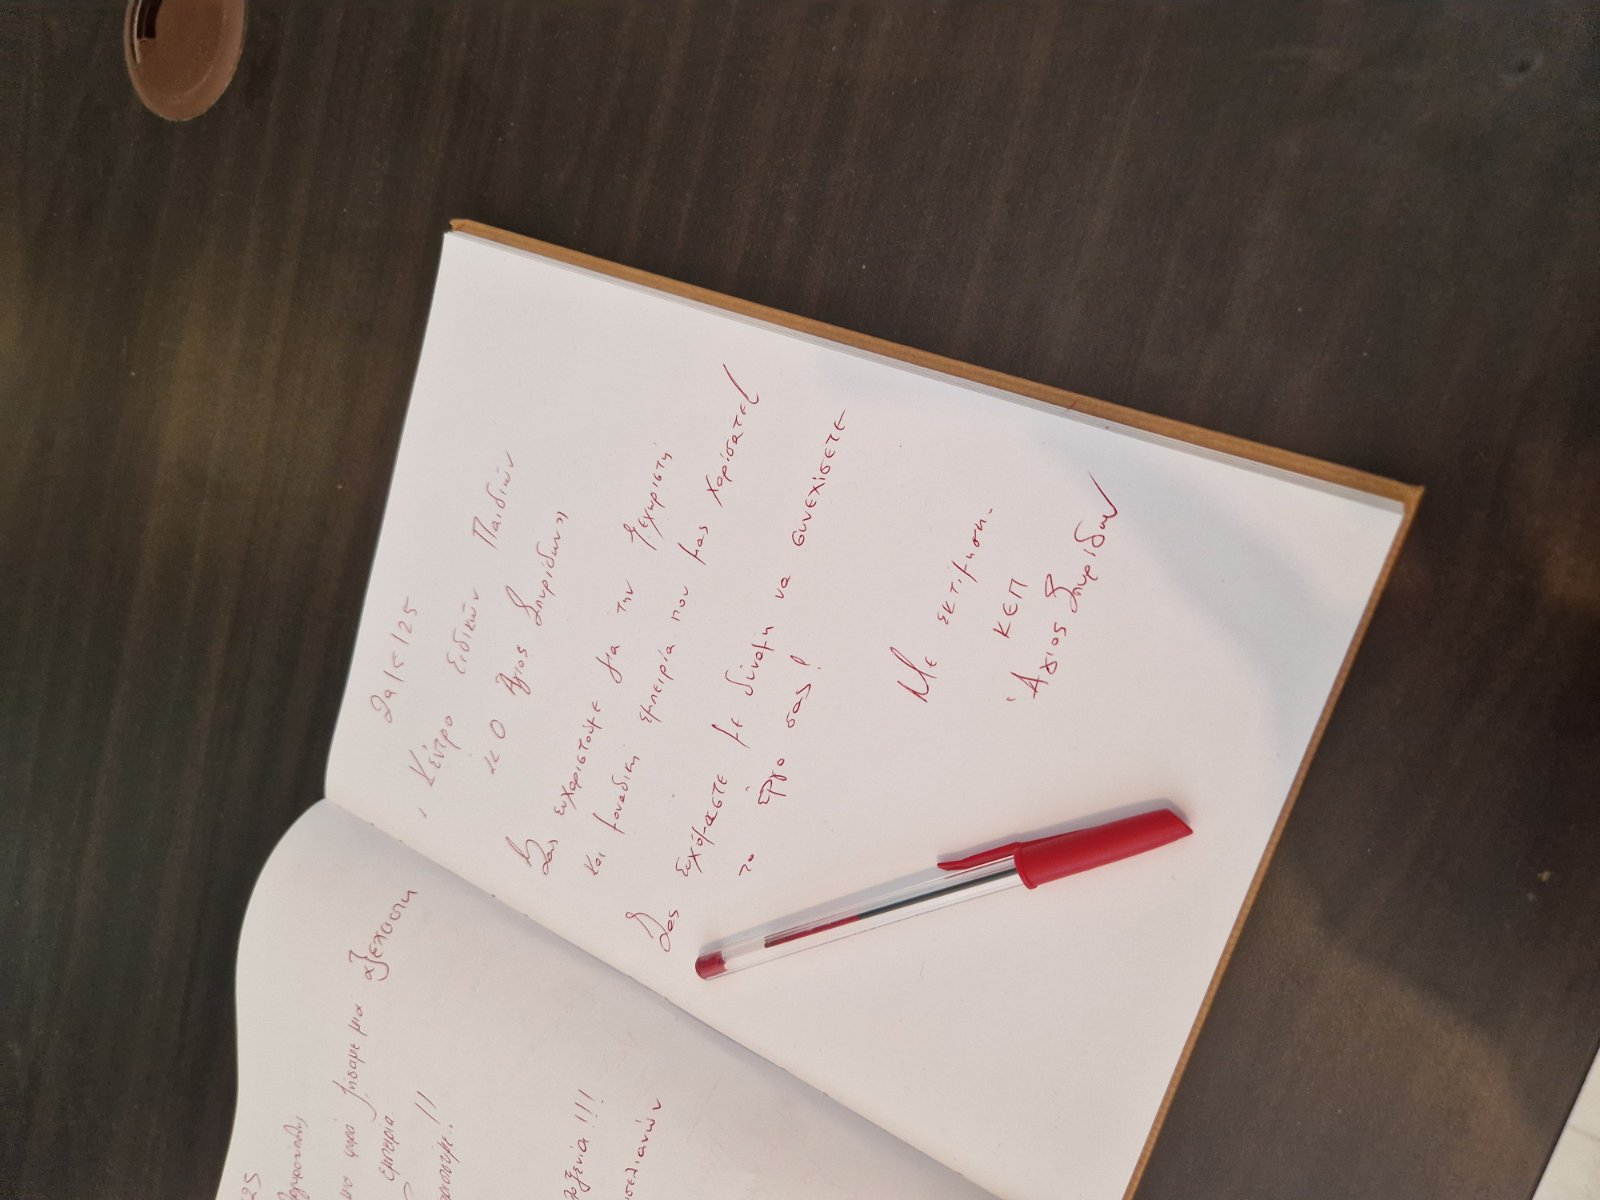 25
μια φορά ζήσαμε μια αξέχαστη
εμπειρία.
!!
!!!
29/5/25
Κέντρο Ειδικών Παιδιών
«Ο Άγιος Σπυρίδων»
Σας ευχαριστούμε για την ξεχωριστή
και μοναδική εμπειρία που μας χαρίσατε!
Σας ευχόμαστε με δύναμη να συνεχίσετε
το έργο σας!
Με εκτίμηση.
ΚΕΠ
Άγιος Σπυρίδων